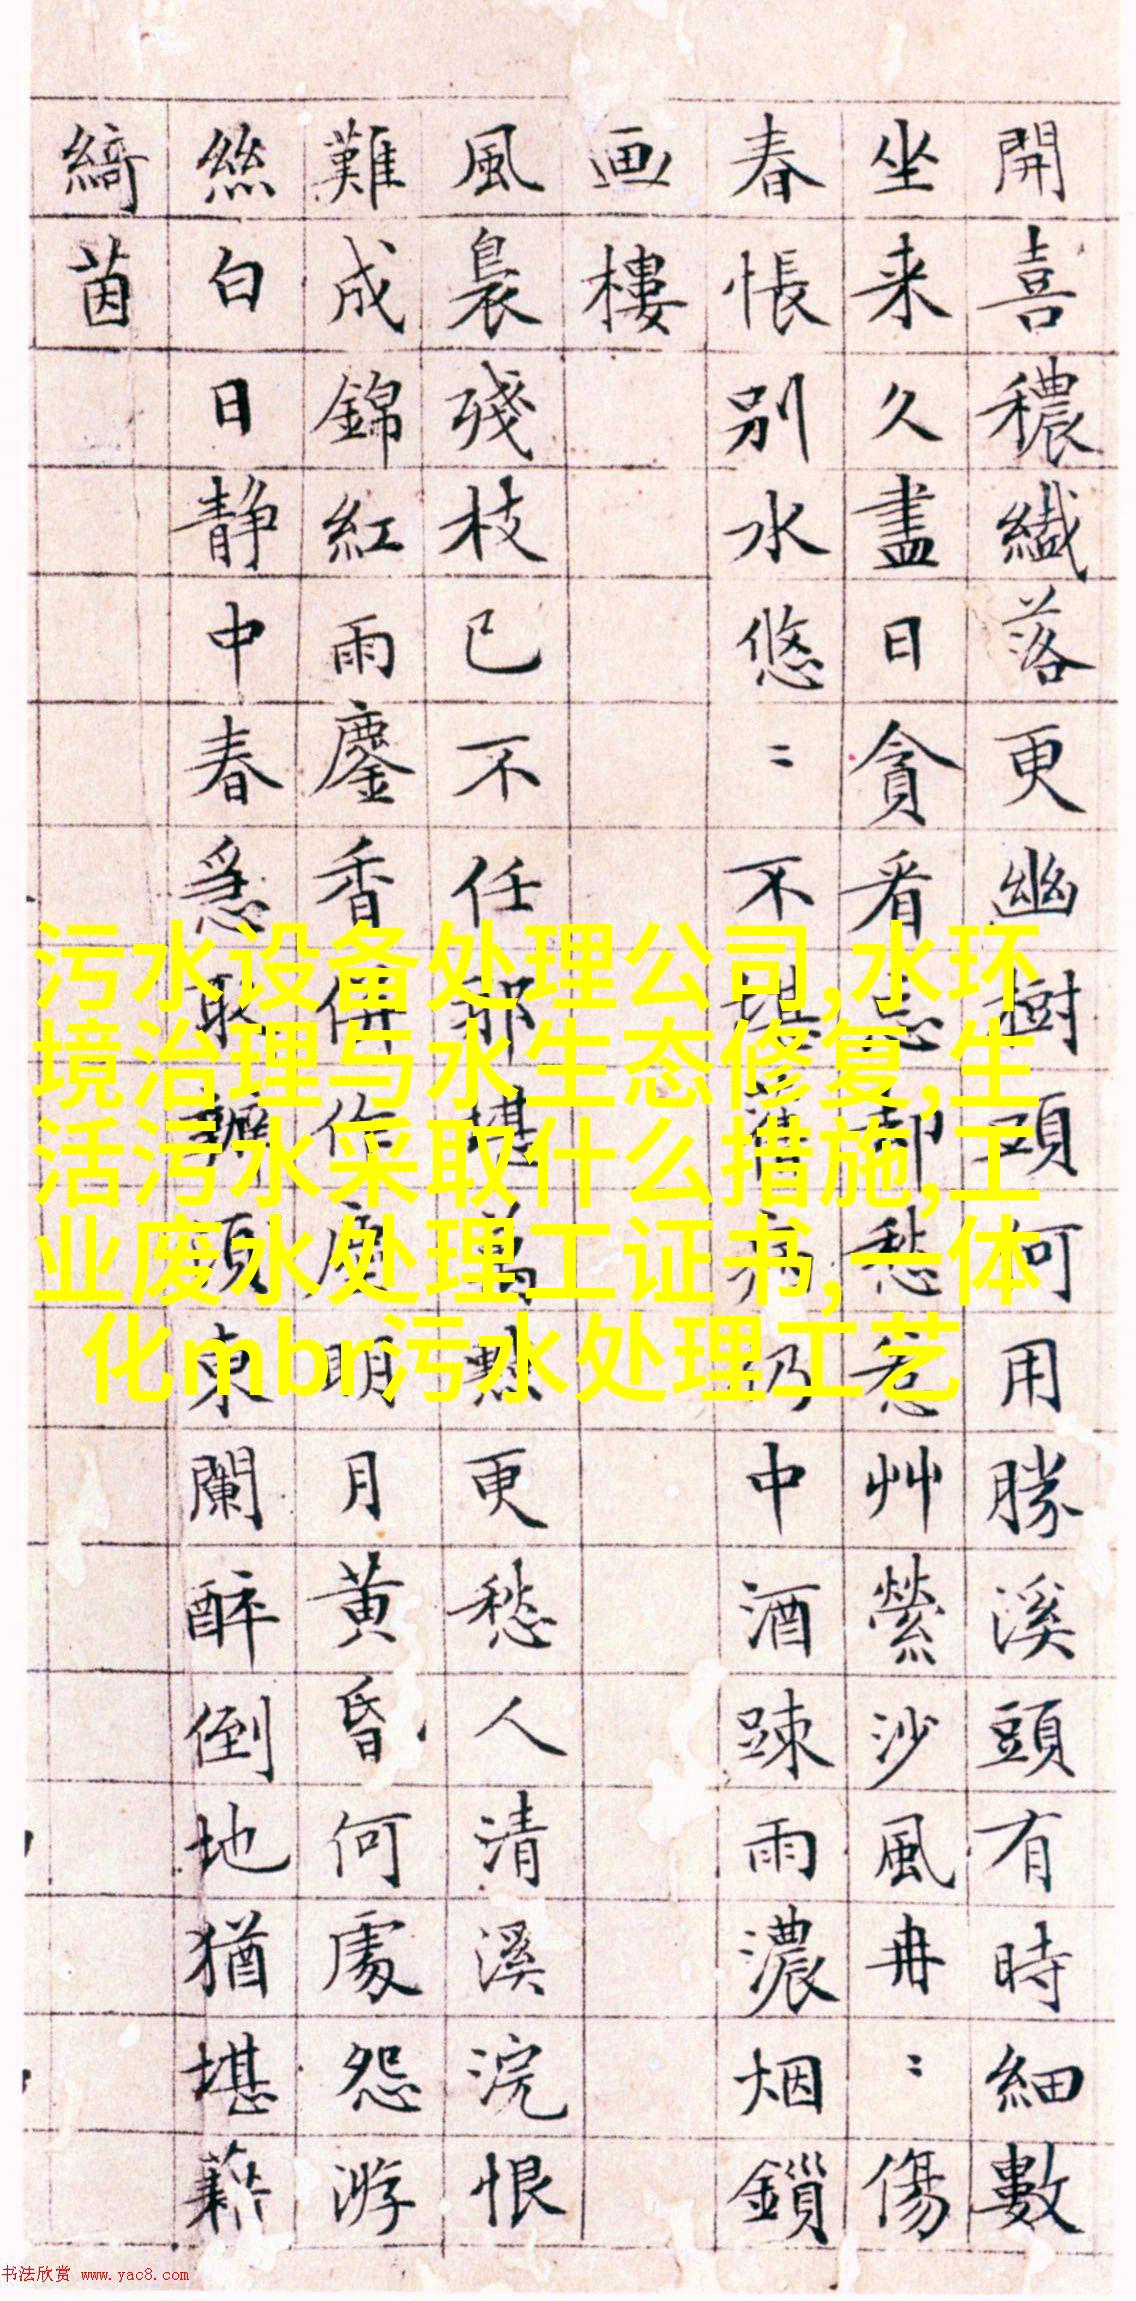 開喜穠纎落更幽樹頭何用勝溪頭有時細數
坐来久盡日貪看忘却愁惹艸縈沙風冉〻傷
春悵別水悠〻不堪舊病仍中酒踈雨濃烟鎖
画樓
風裊殘枝已不任那堪萬點更愁人清溪浣恨
難成錦紅雨鏖香併作塵明月黄昏何處怨游
絲白日静中春急取須東闌醉倒地猶堪藉
綺茵
污水设备处理公司,水环
境治理与水生态修复,生
活污水采取什么措施,工
业废水处理工证书,一体
化mbr污水处理工艺
书法欣赏 www.yac8.com